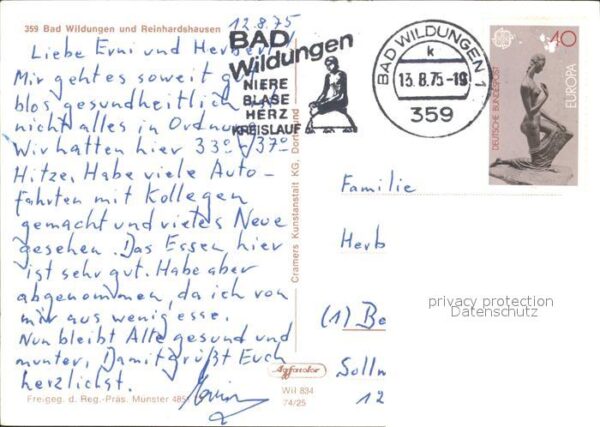 359 Bad Wildungen und Reinhardshausen
12.8.75
Liebe Erni und Herbert!
Mir geht es soweit gut
blos gesundheitlich
nicht alles in Ordnung.
Wir hatten hier 33°-37°
Hitze. Habe viele Auto-
fahrten mit Kollegen
gemacht und vieles Neue
gesehen. Das Essen hier
ist sehr gut. Habe aber
abgenommen, da ich von
mir aus wenig esse.
Nun bleibt Alle gesund und
munter. Damit grüßt Euch
herzlichst.
Freigeg. d. Reg.-Präs. Münster 485
BAD
Wildungen
NIERE
BLASE
HERZ
KREISLAUF
BAD WILDUNGEN 1
k
13.8.75-19
359
40
EUROPA
DEUTSCHE BUNDESPOST
CEPT
Cramers Kunstanstalt KG, Dortmund
Familie
Herb
(1) Be
Solln
12
privacy protection
Datenschutz
Agfacolor
Wil 834
74/25